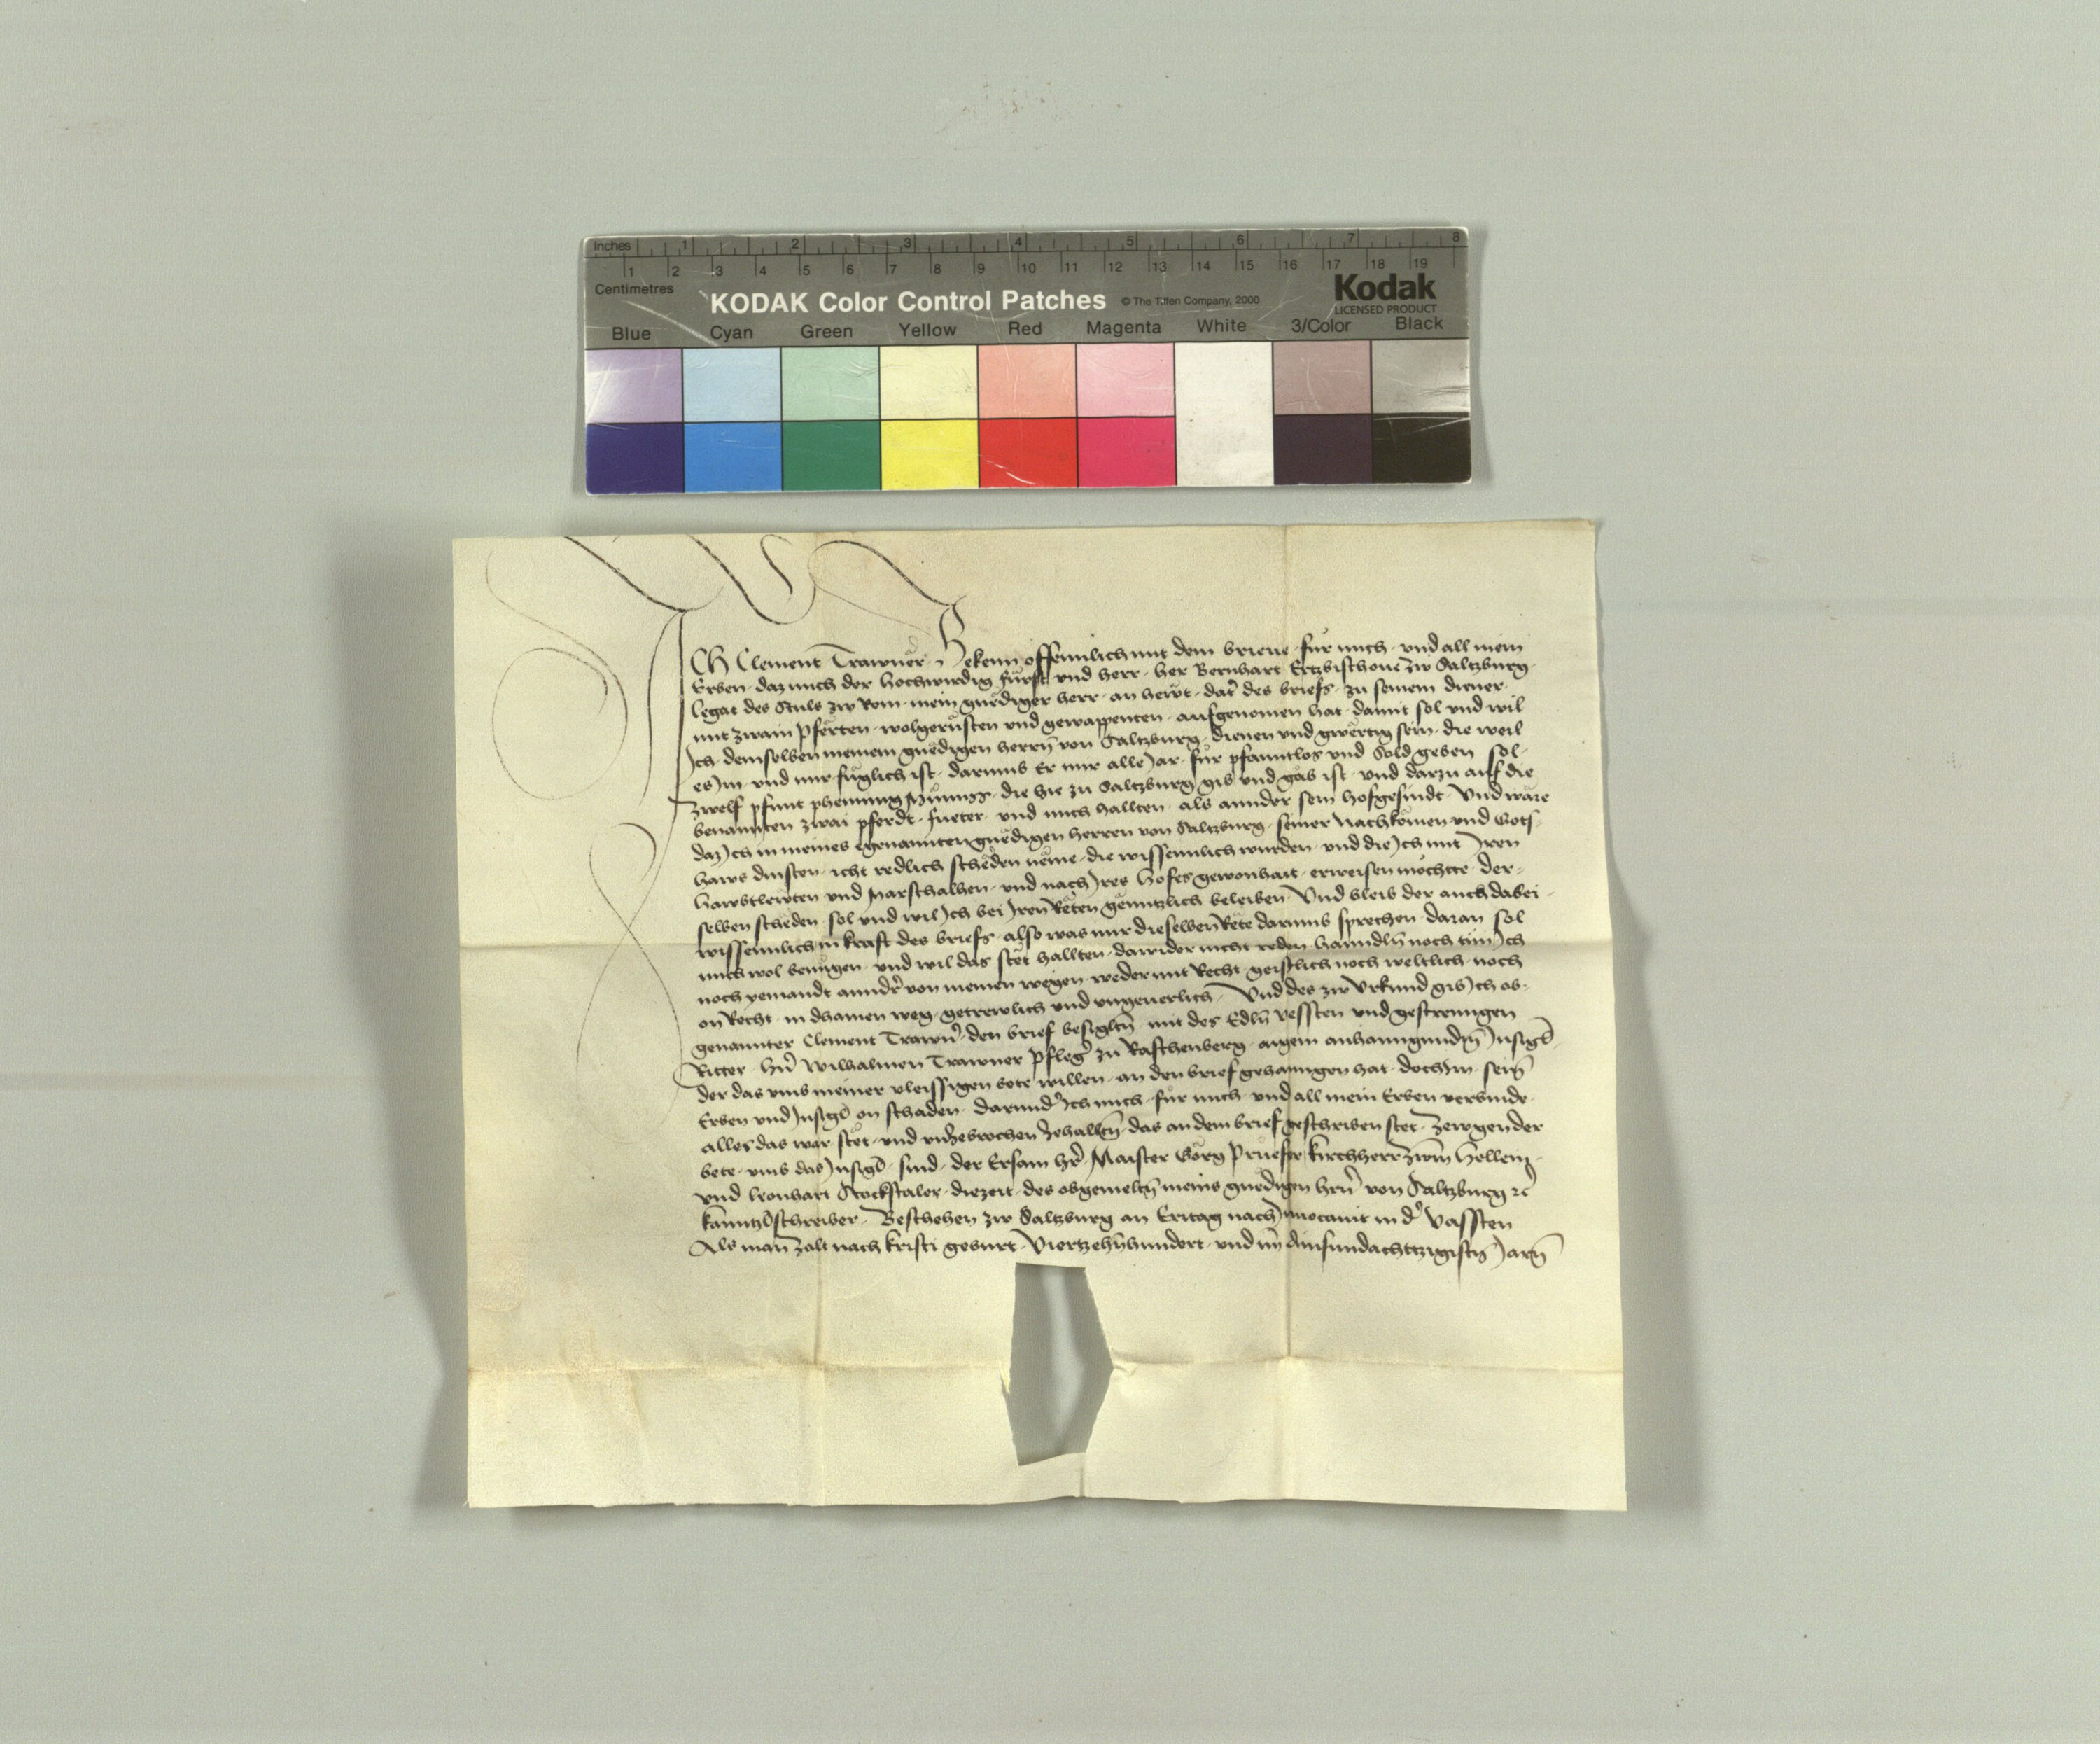 Inches 1 2 3 4 5 6 7 8
1 2 3 4 5 6 7 8 9 10 11 12 13 14 15 16 17 18 19
Centimetres
KODAK Color Control Patches © The Tiffen Company, 2000 Kodak
LICENSED PRODUCT
Blue Cyan Green Yellow Red Magenta White 3/Color Black
ICH Clement Trawner Bekenn offennlich mit dem brieue für mich und all mein
Erben daz mich der hochwirdig fürst und herr her Bernhart Ertzbischoue zw Saltzburg
legat des Stuls zw Rom mein gnëdiger herr an hewt dat des briefs zu seinem diener
mit zwain Pfärten wolgerüsten und gewappenten aufgenomen hat damit sol und wil
Ich demselben meinem gnëdigen herrn von Saltzburg dienen und gwërtig sein die weil
es Im und mir füglich ist darumb Er mir alle Jar für pfanntlos und Sold geben sol
zwelf pfunt phenning Münnss die hie zu Saltzburg gib und gäb ist und darzu auf die
benannten zwai pferdt fueter und mich hallten als annder sein hofgesindt Und wäre
daz Ich in meines egenannten gnëdigen herren von Saltzburg seiner Nachkömen und Gots
haws dinsten icht redlich schëden nëme die wissennlich wurden und die Ich mit Iren
hawbtlewten und Marschalhen und nach Ires hofes gewonhait erweisen möchte der
selben schëden sol und wil Ich bei Iren Rëten gënntzlich beleiben Und bleib der auch dabei
wissennlich in kraft des briefs also was mir dieselben Rëte darumb sprechen daran sol
mich wol benügen und wil das stët hallten dawider nicht reden hanndln noch tun Ich
noch yemandt anndr von meinen wegen weder mit Recht geistlich noch weltlich noch
on Recht in dhainen weg getrewlich und ungeuerlich Und des zw Urkund gib Ich ob
genannter Clement Trawnr den brief besigltn mit des Edln vessten und gestrenngen
Ritter hrn Wilhalmen Trawner Pfleger zu Raschenberg aigem anhanngundm Insigl
der das umb meiner vleissigen bete willen an den brief gehanngen hat doch Im sein
Erben und Insigl on schaden darundr Ich mich für mich und all mein Erben verbinde
alles das war stët und unzebrochen zehalltn das an dem brief geschriben stet zewgen der
bete umb das Insigl sind der Ersam hr Maister Görg Prüefer kirchherr zwm Hellem
und leonhart Stockstaler diezeit des obgemeltn meins gnëdigen hrn von Saltzburg etc
kanntzlschreiber Beschehen zw Saltzburg an Eritag nach Inuocauit in der Vassten
Als man zalt nach kristi geburt Viertzehnhundert und im Ainsundachttzigistn Jarn